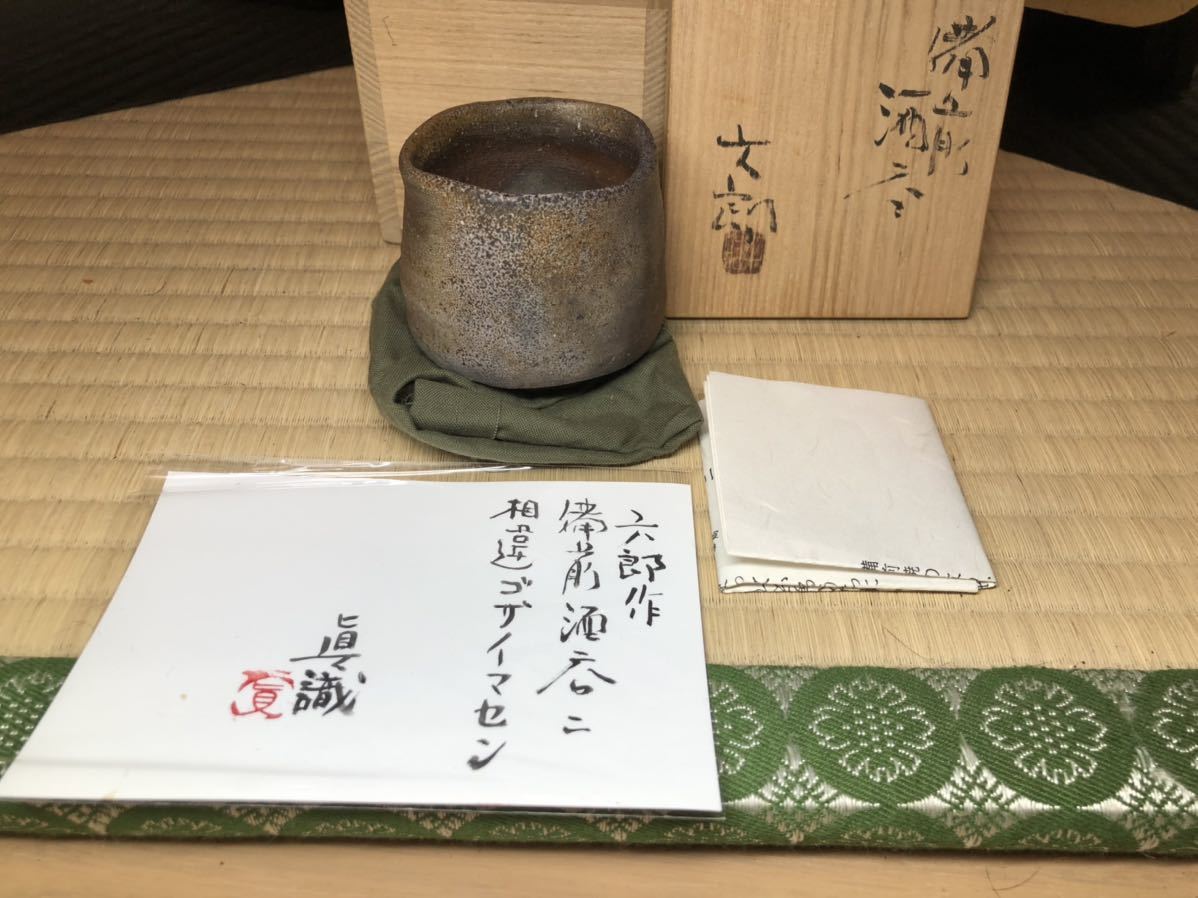 備前
酒呑
六郎
六郎作
備前酒呑ニ
相違ゴザイマセン
眞識
眞